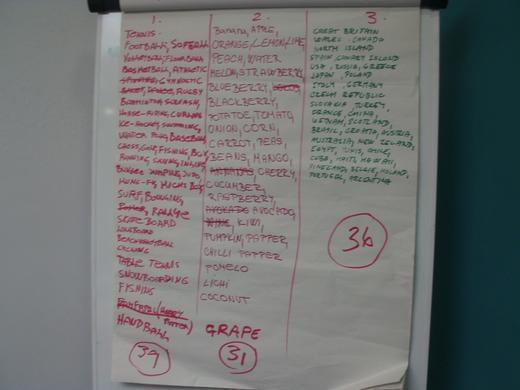 1.
TENNIS
FOOTBALL, SOFTBALL
VOLLEYBALL, FLOORBALL
BASKETBALL, ATHLETIC
GYMNASTIC
RUGBY
SQUASH,
HORSE-RIDING, CURLING
ICE-HOCKEY, SWIMMING,
WATER POLO, BASEBALL
FISHING, BOX
RUNNING, SKIING,
BUNGEE JUMPING, JUDO
KUNG-FU, KICKS BOX
SURF, BOWLING
RALLYE
SKATEBOARD
LONGBOARD
BEACHVOLLEYBALL
CYCLING
TABLE TENNIS
SNOWBOARDING
FISHING
(HARRY
POTTER)
HANDBALL
39
2.
BANANA, APPLE,
ORANGE/LEMON/LIME,
PEACH, WATER
MELON, STRAWBERRY,
BLUEBERRY,
BLACKBERRY,
POTATOE, TOMATO,
ONION, CORN,
CARROT, PEAS,
BEANS, MANGO,
CHERRY,
CUCUMBER,
RASPBERRY,
AVOCADO AVOCADO,
KIWI,
PUMPKIN, PAPPER,
CHILLI PAPPER
POMELO
LICHI
COCONUT
GRAPE
31
3.
GREAT BRITAIN
WALES, CANADA
NORTH ISLAND
SPAIN, CANARY ISLAND
USA, RUSSIA, GREECE
JAPAN, POLAND
ITALY, GERMANY
CZECH REPUBLIC
SLOVAKIA, TURKEY,
FRANCE, CHINA,
VIETNAM, SCOTLAND,
BRASIL, CROATIA, AUSTRIA,
AUSTRALIA, NEW ZELAND,
EGYPT, TUNIS, CHILE,
CUBA, HAITI, HAWAII,
FINELAND, BELGIE, HOLAND,
PORTUGAL, ARGENTINA
36